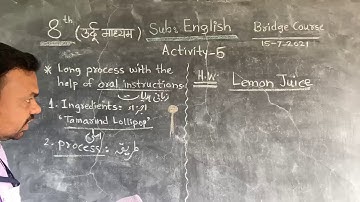 8th (उर्दू माध्यम) Sub: English
Bridge Course
15-7-2021
Activity-5
* Long process with the
help of oral instructions
1. Ingredients:
"Tamarind Lollipop"
املی
2. process: طریقہ
H.W. Lemon Juice